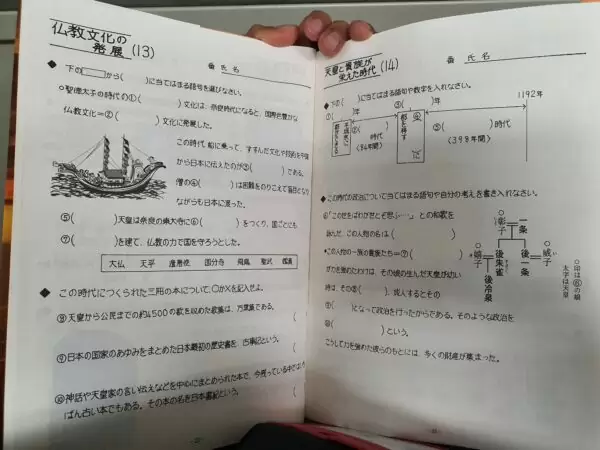 仏教文化の
発展 (13)
番 氏名
◆ 下の□から( )に当てはまる語句を選びなさい。
○聖徳太子の時代の①( )文化は、奈良時代になると、国際色豊かな
仏教文化=②( )文化に発展した。
この時代、船に乗って、すすんだ文化や技術を中国
から日本に伝えたのが③( )である。
僧の④( )は困難をのりこえて盲目となり
ながらも日本に渡った。
⑤( )天皇は奈良の東大寺に⑥( )をつくり、国ごとにも
⑦( )を建て、仏教の力で国を守ろうとした。
大仏 天平 遣唐使 国分寺 飛鳥 聖武 鑑真
◆ この時代につくられた三冊の本について、○か×を記入せよ。
⑧天皇から公民までの約4500の歌を収めた歌集は、万葉集である。
( 
⑨日本の国家のあゆみをまとめた日本最初の歴史書を、古事記という。
( 
⑩神話や天皇家の言い伝えなどを中心にまとめられた本で、今残っている中では
ばん古い本でもある。その本の名を日本書紀という。 (
天皇と貴族が
栄えた時代 (14)
番 氏名
◆ 下の( )に当てはまる語句や数字を入れなさい。
①( )年 ③( )年 1192年
②( )時代
(84年間)
都を移す
⑤( )時代
(398年間)
◆この時代の政治について当てはまる語句や自分の考えを書き入れなさい。
⑥「この世をばわが世とぞ思ふ…」との和歌を
詠んだ、この人物の名は( )
◆この人物の一族の貴族たち=⑦(
が力を強めたわけは、その娘の生んだ天皇が幼い
時は、その⑧( )、成人するとその
⑨( )になって政治を行ったからである。そのような政治を
⑩( )という。
こうして力を強めた彼らのもとには、多くの財産が集まった。
○彰子
一条
○威子
後一条
後朱雀
○嬉子
後冷泉
○印は⑥の娘
太字は天皇